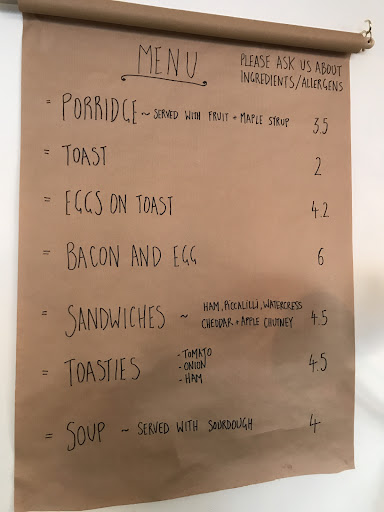 MENU
PLEASE ASK US ABOUT
INGREDIENTS/ALLERGENS
= PORRIDGE ~ SERVED WITH FRUIT + MAPLE SYRUP 3.5
= TOAST 2
= EGGS ON TOAST 4.2
= BACON AND EGG 6
= SANDWICHES ~ HAM, PICCALILLI, WATERCRESS
CHEDDAR + APPLE CHUTNEY 4.5
= TOASTIES - TOMATO
- ONION 4.5
- HAM
= SOUP ~ SERVED WITH SOURDOUGH 4